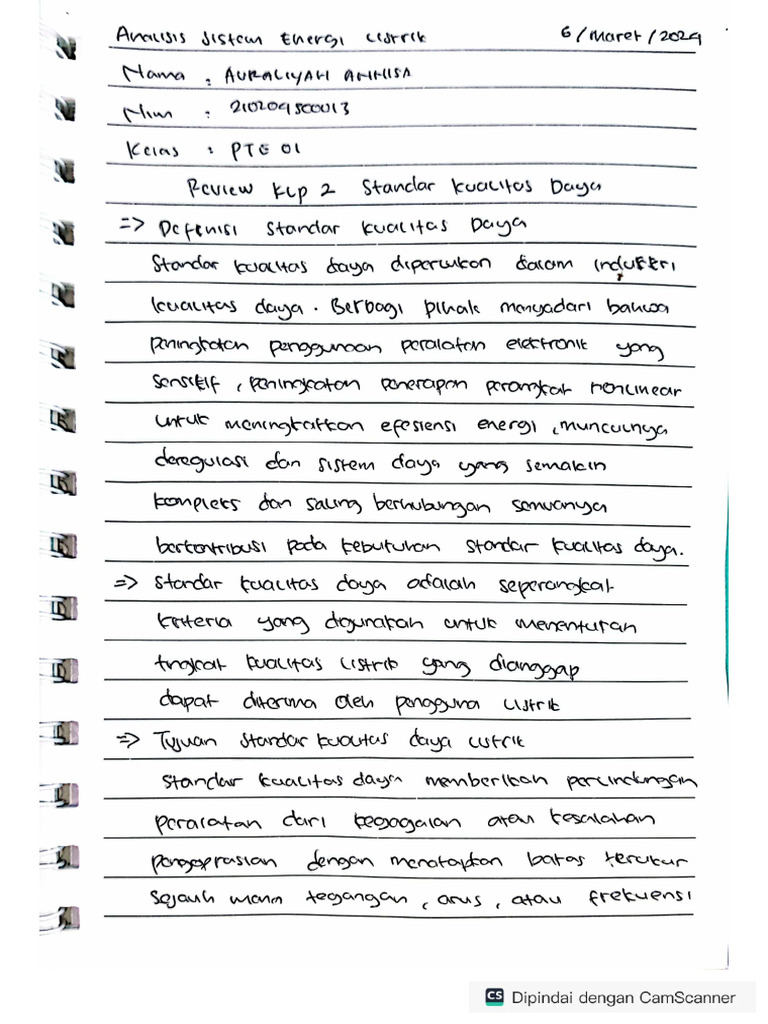 Analisis Sistem Energi Listrik 6/Maret/2024
Nama : AURALIYAH ANNISA
Nim : 210209500013
Kelas : PTE 01
Review Klp 2 Standar Kualitas Daya
=> Defenisi Standar Kualitas Daya
Standar kualitas daya diperlukan dalam industri
kualitas daya. Berbagi pihak menyadari bahwa
peningkatan penggunaan peralatan elektronik yang
sensitif, peningkatan penerapan perangkat nonlinear
untuk meningkatkan efesiensi energi, munculnya
deregulasi dan sistem daya yang semakin
kompleks dan saling berhubungan semuanya
berkontribusi pada kebutuhan standar kualitas daya.
=> Standar kualitas daya adalah seperangkat
kriteria yang digunakan untuk menentukan
tingkat kualitas listrik yang dianggap
dapat diterima oleh pengguna listrik
=> Tujuan standar kualitas daya listrik
Standar kualitas daya memberikan perlindungan
peralatan dari kegagalan atau kesalahan
pengoprasian dengan menetapkan batas terukur
sejauh mana tegangan, arus, atau frekuensi
CS Dipindai dengan CamScanner